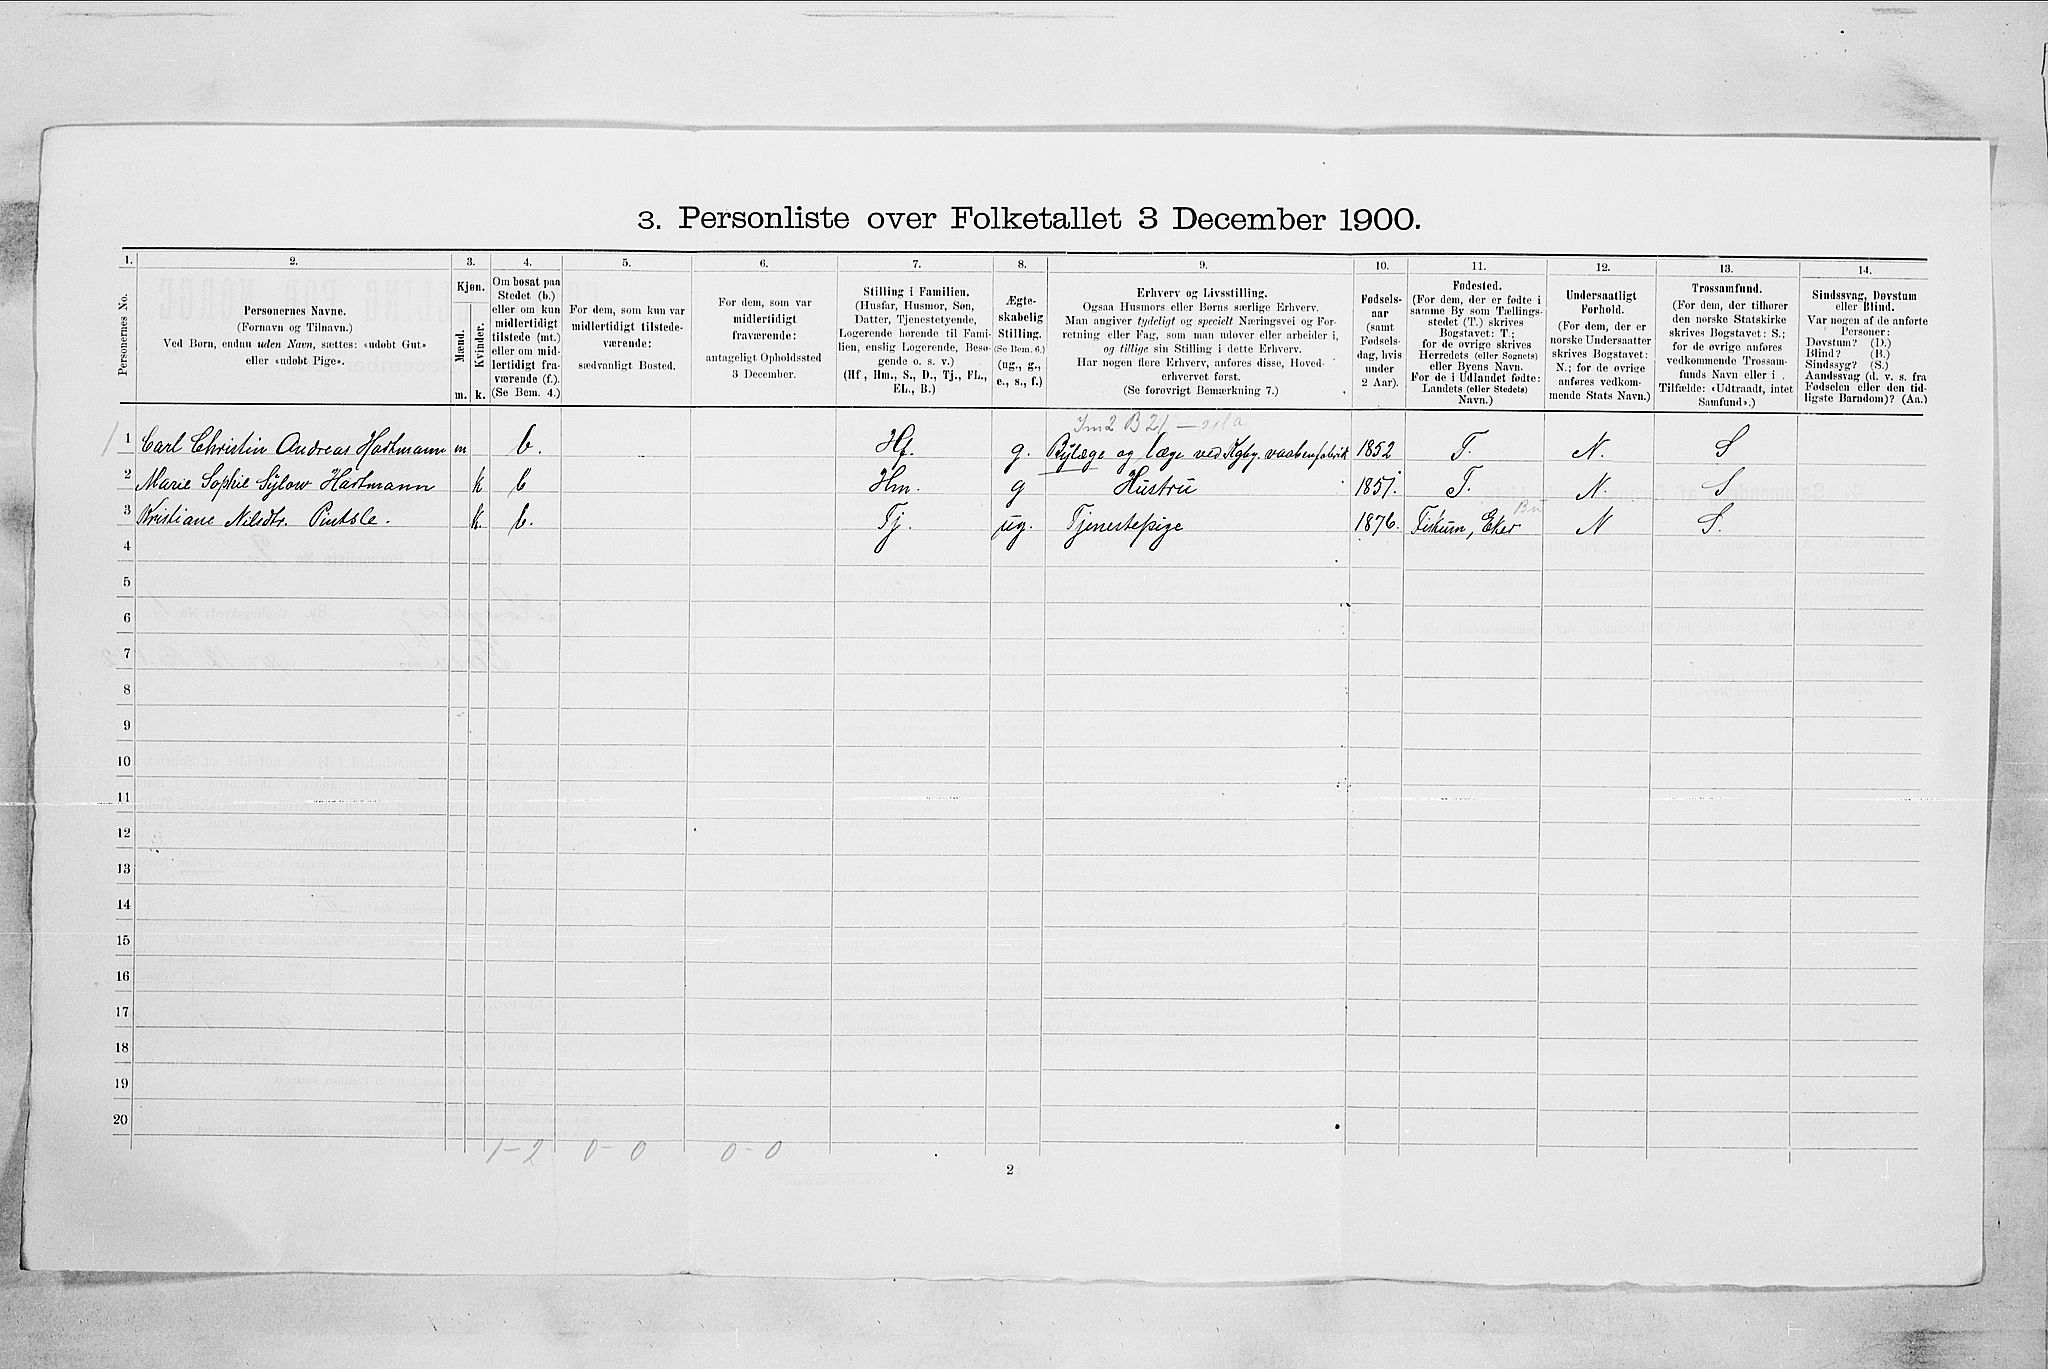 3. Personliste over Folketallet 3 December 1900.
1. 2. 3. 4. 5. 6. 7. 8. 9. 10. 11. 12. 13. 14.
Personernes No.
Personernes Navne.
(Fornavn og Tilnavn.)
Ved Børn, endnu uden Navn, sættes: «udøbt Gut»
eller «udøbt Pige».
Kjøn.
Mænd.
Kvinder.
m. k.
Om bosat paa
Stedet (b.)
eller om kun
midlertidigt
tilstede (mt.)
eller om mid-
lertidigt fra-
værende (f.).
(Se Bem. 4.)
For dem, som kun var
midlertidigt tilstede-
værende:
sædvanligt Bosted.
For dem, som var
midlertidigt
fraværende:
antageligt Opholdssted
3 December.
Stilling i Familien.
(Husfar, Husmor, Søn,
Datter, Tjenestetyende,
Logerende hørende til Fami-
lien, enslig Logerende, Besø-
gende o. s. v.)
(Hf., Hm., S., D., Tj., FL.,
EL., B.)
Ægte-
skabelig
Stilling.
(Se Bem. 6.)
(ug., g.,
e., s., f.)
Erhverv og Livsstilling.
Ogsaa Husmors eller Børns særlige Erhverv.
Man angiver tydeligt og specielt Næringsvei og For-
retning eller Fag, som man udøver eller arbeider i,
og tillige sin Stilling i dette Erhverv.
Har nogen flere Erhverv, anføres disse, Hoved-
erhvervet først.
(Se forøvrigt Bemærkning 7.)
Fødsels-
aar
(samt
Fødsels-
dag, hvis
under
2 Aar).
Fødested.
(For dem, der er fødte i
samme By som Tællings-
stedet (T.) skrives
Bogstavet: T.;
for de øvrige skrives
Herredets (eller Sognets)
eller Byens Navn.
For de i Udlandet fødte:
Landets (eller Stedets)
Navn.)
Undersaatligt
Forhold.
(For dem, der er
norske Undersaatter
skrives Bogstavet:
N.; for de øvrige
anføres vedkom-
mende Stats Navn.)
Trossamfund.
(For dem, der tilhører
den norske Statskirke
skrives Bogstavet: S.;
for de øvrige anføres
vedkommende Trossam-
funds Navn eller i
Tilfælde: «Udtraadt, intet
Samfund».)
Sindssvag, Døvstum
eller Blind.
Var nogen af de anførte
Personer:
Døvstum? (D.)
Blind? (B.)
Sindssyg? (S.)
Aandssvag (d. v. s. fra
Fødselen eller den tid-
ligste Barndom)? (Aa.)
1 Carl Christin Andreas Hartmann m b. Hf. g. Bylæge og læge ved Kgbg. vaabenfabrik 1852 T. N. S
2 Marie Sophie Sylow Hartmann k b Hm. g Hustru 1857. T. N. S
3 Kristiane Nilsdtr. Pintsle. k. b. Tj. ug. Tjenestepige 1876. Fiskum, Eker N S.
4
5
6
7
8
9
10
11
12
13
14
15
16
17
18
19
20
1-2 0-0 0-0
2